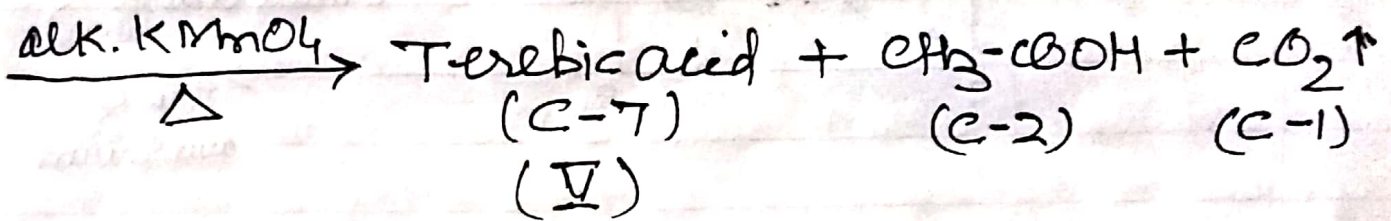 alk. KMnO4 Terebic acid + CH3-COOH + CO2↑
Δ (C-7) (C-2) (C-1)
(V)